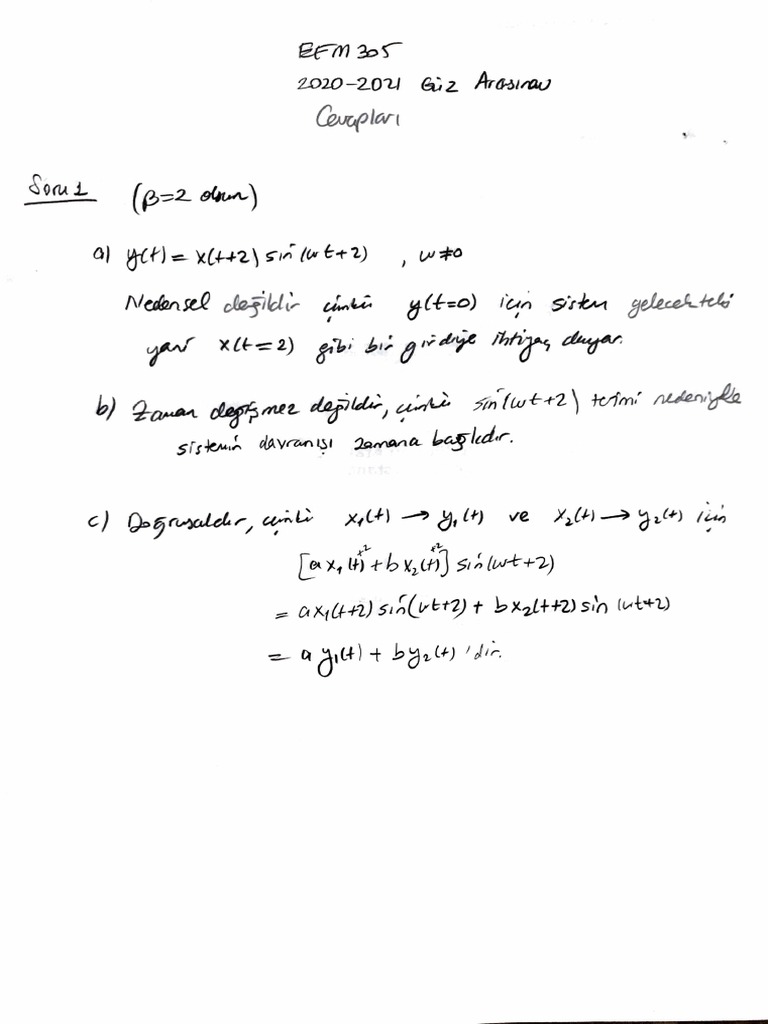 EEM 305
2020-2021 Güz Arasınav
Cevapları
Soru 1 (β=2 olsun)
a) y(t) = x(t+2) sin(wt+2) , w≠0
Nedensel değildir çünkü y(t=0) için sistem gelecekteki
yani x(t=2) gibi bir girdiye ihtiyaç duyar.
b) Zaman değişmez değildir, çünkü sin(wt+2) terimi nedeniyle
sistemin davranışı zamana bağlıdır.
c) Doğrusaldır, çünkü x₁(t) → y₁(t) ve x₂(t) → y₂(t) için
[a x₁(t+2) + b x₂(t+2)] sin(wt+2)
= a x₁(t+2) sin(wt+2) + b x₂(t+2) sin(wt+2)
= a y₁(t) + b y₂(t) 'dir.